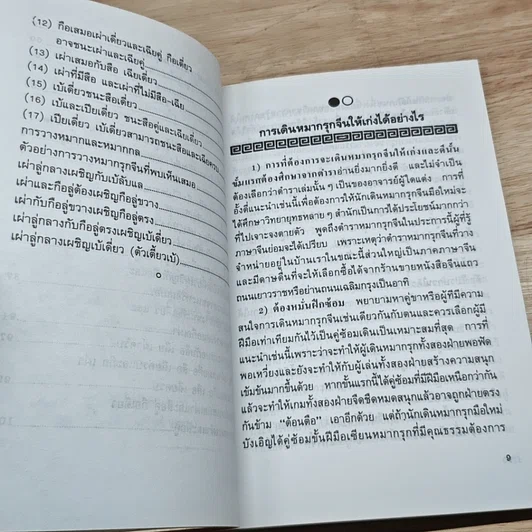 (12) กือเสมอเผ่าเดี่ยวและเฉียคู่ กือเดี่ยว
อาจชนะเผ่าและเฉียคู่
(13) เผ่าเสมอกับสือ เฉียเดี่ยว
(14) เผ่าที่มีสือ และเผ่าที่ไม่มีสือ-เฉีย
(15) เบ้เดี่ยวชนะสือเดี่ยว
(16) เบ้และเปียเดี่ยว ชนะสือคู่และเฉียเดี่ยว
(17) เปียเดี่ยว เบ้เดี่ยวสามารถชนะสือและเฉียครบ
การวางหมากและหมากกล
ตัวอย่างการวางหมากรุกจีนที่พบเห็นเสมอ
เผ่าสู่กลางเผชิญกับเบ้ลับแล
เผ่าและกือสู่ต้องเผชิญกือสู่ขวาง
เผ่ากับกือสู่ขวางเผชิญกือสู่ตรง
เผ่าสู่กลางกับกือสู่ตรงเผชิญเบ้เดี่ยว
เผ่าสู่กลางเผชิญเบ้เดี่ยว (ตัวเตี้ยวเบ้)
การเดินหมากรุกจีนให้เก่งได้อย่างไร
1) การที่ต้องการจะเดินหมากรุกจีนให้เก่งและดีนั้น
ขั้นแรกต้องศึกษาจากตำราอ่านยิ่งมากยิ่งดี และไม่จำเป็น
ต้องเลือกว่าตำราเล่มนั้น ๆ เป็นของอาจารย์ผู้ใดแต่ง การที่
อั้งตี่แนะนำเช่นนี้เพื่อต้องการให้นักเดินหมากรุกจีนมือใหม่จะ
ได้ศึกษาวิทยายุทธหลาย ๆ สำนักเป็นการได้ประโยชน์มากกว่า
ที่ไปเจาะจงตายตัว พูดถึงตำราหมากรุกจีนในประการนี้ผู้ที่รู้
ภาษาจีนย่อมจะได้เปรียบ เพราะเหตุว่าตำราหมากรุกจีนที่วาง
จำหน่ายอยู่ในบ้านเราในขณะนี้ส่วนใหญ่เป็นภาคภาษาจีน
และมีดาษดื่นที่จะให้เลือกซื้อได้จากร้านขายหนังสือจีนแถว
ถนนเยาวราชหรือย่านถนนเฉลิมกรุงเป็นอาทิ
2) ต้องหมั่นฝึกซ้อม พยายามหาคู่ขาหรือผู้ที่มีความ
สนใจการเดินหมากรุกจีนเช่นเดียวกันกับตนและควรเลือกผู้มี
ฝีมือเท่าเทียมกันไว้เป็นคู่ซ้อมเดินเป็นเหมาะสมที่สุด การที่
แนะนำเช่นนี้เพราะว่าจะทำให้ผู้เดินหมากรุกทั้งสองฝ่ายพอฟัด
พอเหวี่ยงและยังจะทำให้กับผู้เล่นทั้งสองฝ่ายสร้างความสนุก
เข้มข้นมากขึ้นด้วย หากขั้นแรกนี้ได้คู่ซ้อมที่มีฝีมือเหนือกว่ากัน
แล้วจะทำให้เกมทั้งสองฝ่ายจืดชืดหมดสนุกแล้วอาจถูกฝ่ายตรง
กันข้าม "ต้อนตือ" เอาอีกด้วย แต่ถ้านักเดินหมากรุกมือใหม่
บังเอิญได้คู่ซ้อมขั้นฝีมือเซียนหมากรุกที่มีคุณธรรมต้องการ
9